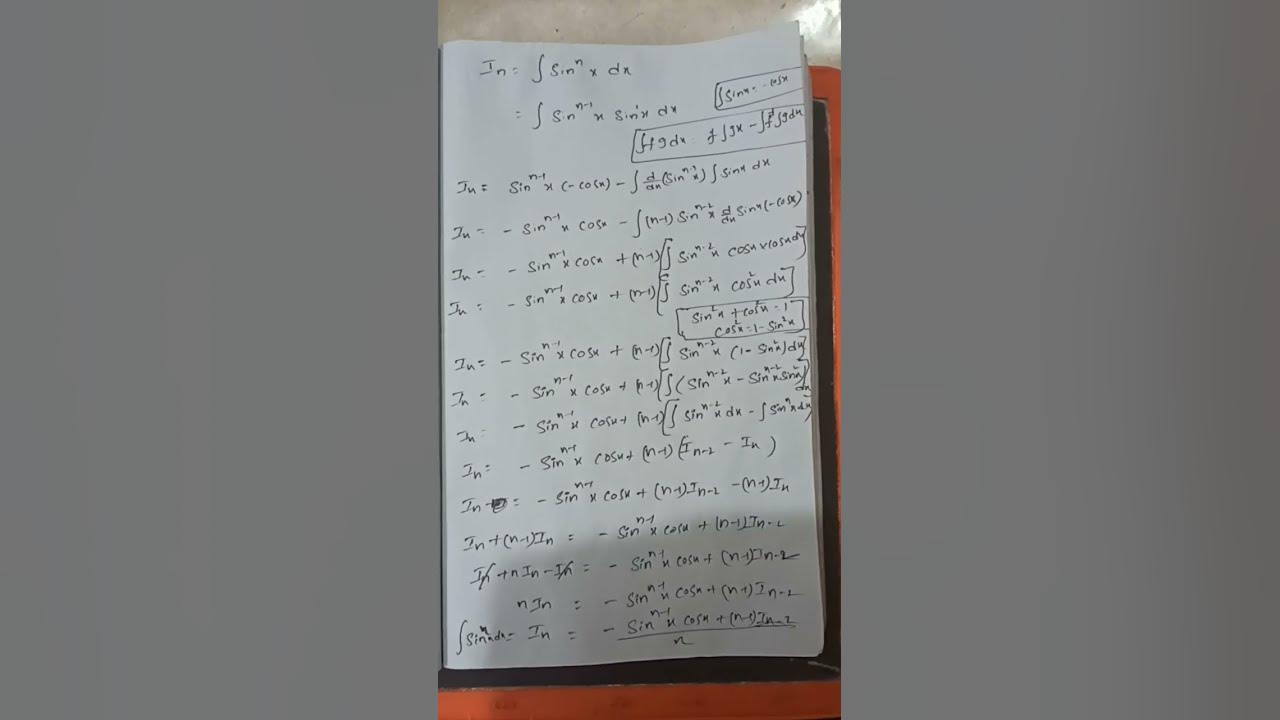 Iₙ = ∫ Sinⁿ x dx
= ∫ Sinⁿ⁻¹ x Sin¹x dx
∫Sinx = -cosx
∫fg dx = f ∫gx - ∫f' ∫gdx
Iₙ = Sinⁿ⁻¹ x (-cosx) - ∫ d/dx (Sinⁿ⁻¹ x) ∫ Sinx dx
Iₙ = - Sinⁿ⁻¹ x cosx - ∫(n-1) Sinⁿ⁻² x d/dx Sinx (-cosx)
Iₙ = - Sinⁿ⁻¹ x cosx + (n-1)[∫ Sinⁿ⁻² x cosx x cosx dx]
Iₙ = - Sinⁿ⁻¹ x cosx + (n-1)[∫ Sinⁿ⁻² x cos²x dx]
Sin²x + cos²x = 1
cos²x = 1 - Sin²x
Iₙ = - Sinⁿ⁻¹ x cosx + (n-1)[∫ Sinⁿ⁻² x (1 - Sin²x) dx]
Iₙ = - Sinⁿ⁻¹ x cosx + (n-1)[∫ (Sinⁿ⁻² x - Sinⁿ⁻² x Sin²x) dx
Iₙ = - Sinⁿ⁻¹ x cosx + (n-1)[∫ Sinⁿ⁻² x dx - ∫ Sinⁿ x dx]
Iₙ = - Sinⁿ⁻¹ x cosx + (n-1) (Iₙ₋₂ - Iₙ)
Iₙ = - Sinⁿ⁻¹ x cosx + (n-1)Iₙ₋₂ - (n-1)Iₙ
Iₙ + (n-1)Iₙ = - Sinⁿ⁻¹ x cosx + (n-1)Iₙ₋₂
Iₙ + nIₙ - Iₙ = - Sinⁿ⁻¹ x cosx + (n-1)Iₙ₋₂
nIₙ = - Sinⁿ⁻¹ x cosx + (n-1)Iₙ₋₂
∫Sinⁿx dx = Iₙ = - Sinⁿ⁻¹ x cosx + (n-1)Iₙ₋₂
n